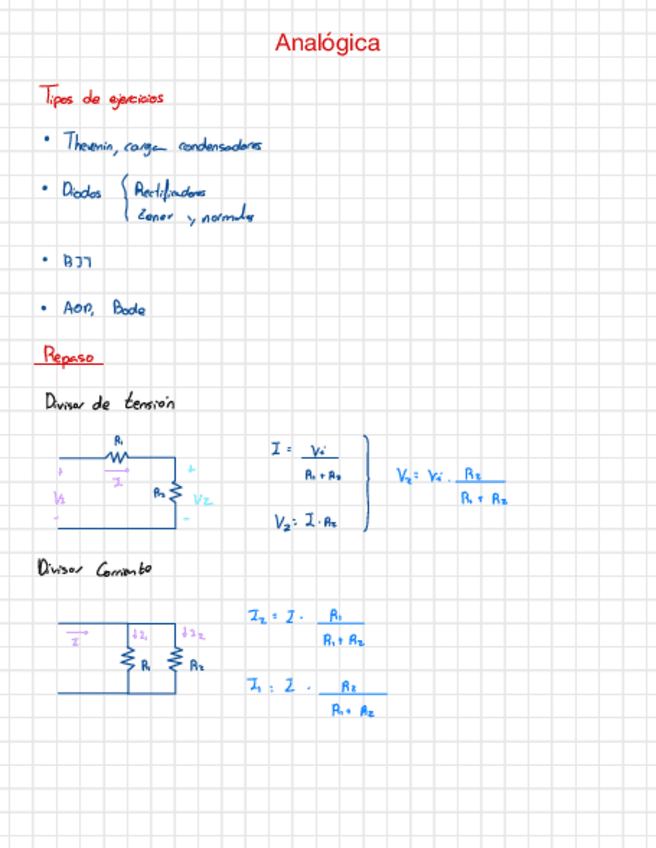 Analógica
Tipos de ejercicios
• Thevenin, carga condensadores
• Diodos { Rectificadores
Zener y normales
• BJT
• AOP, Bode
Repaso
Divisor de tensión
R₁
I
V₁
R₂
+ V₂ -
I = Vi / (R₁ + R₂)
V₂ = I · R₂
V₂ = Vi · R₂ / (R₁ + R₂)
Divisor Corriente
I
↓I₁
↓I₂
R₁
R₂
I₂ = I · R₁ / (R₁ + R₂)
I₁ = I · R₂ / (R₁ + R₂)